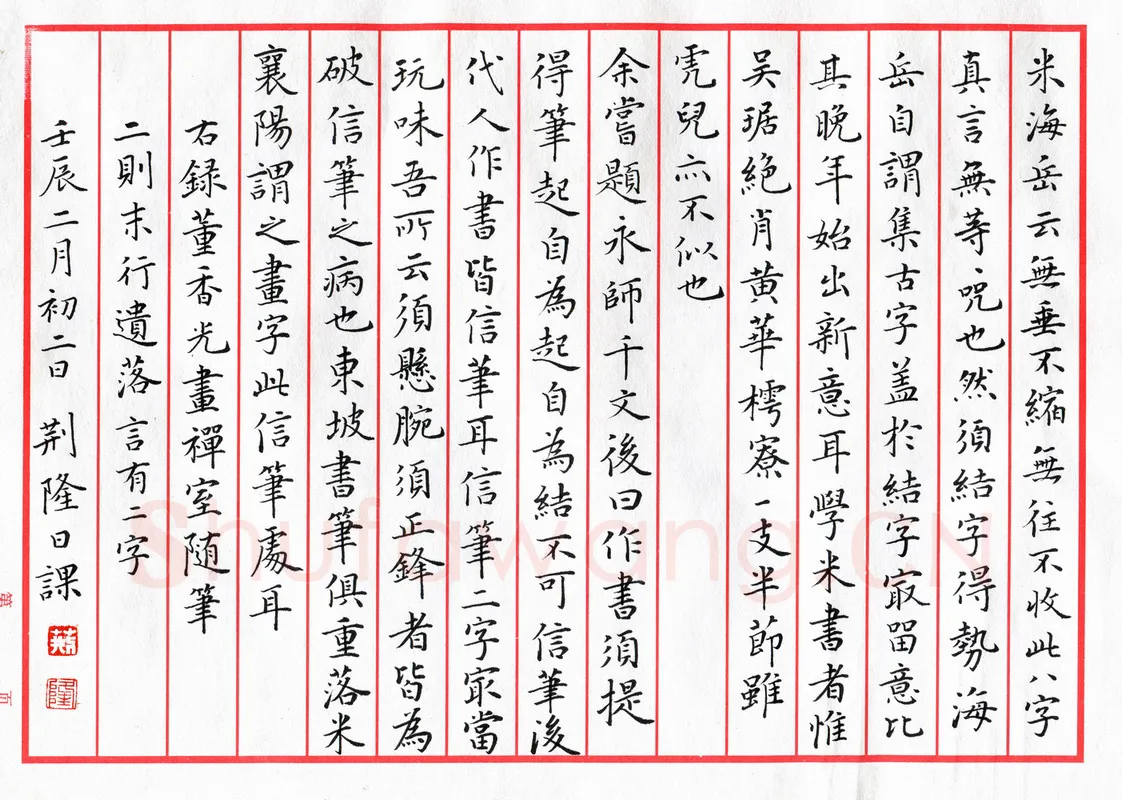 米海岳云無垂不縮無往不收此八字
真言無等〻咒也然須結字得勢海
岳自謂集古字盖於結字㝡留意比
其晚年始出新意耳學米書者惟
吴琚絶肖黄華樗寮一支半節雖
虎兒亦不似也
余嘗題永師千文後曰作書須提
得筆起自為起自為結不可信筆後
代人作書皆信筆耳信筆二字㝡當
玩味吾所云須懸腕須正鋒者皆為
破信筆之病也東坡書筆俱重落米
襄陽謂之畫字此信筆處耳
右録董香光畫禪室随筆
二則末行遺落 言有二字
壬辰二月初二日 荆隆日課
荆
隆
Shufawang CN
第 頁